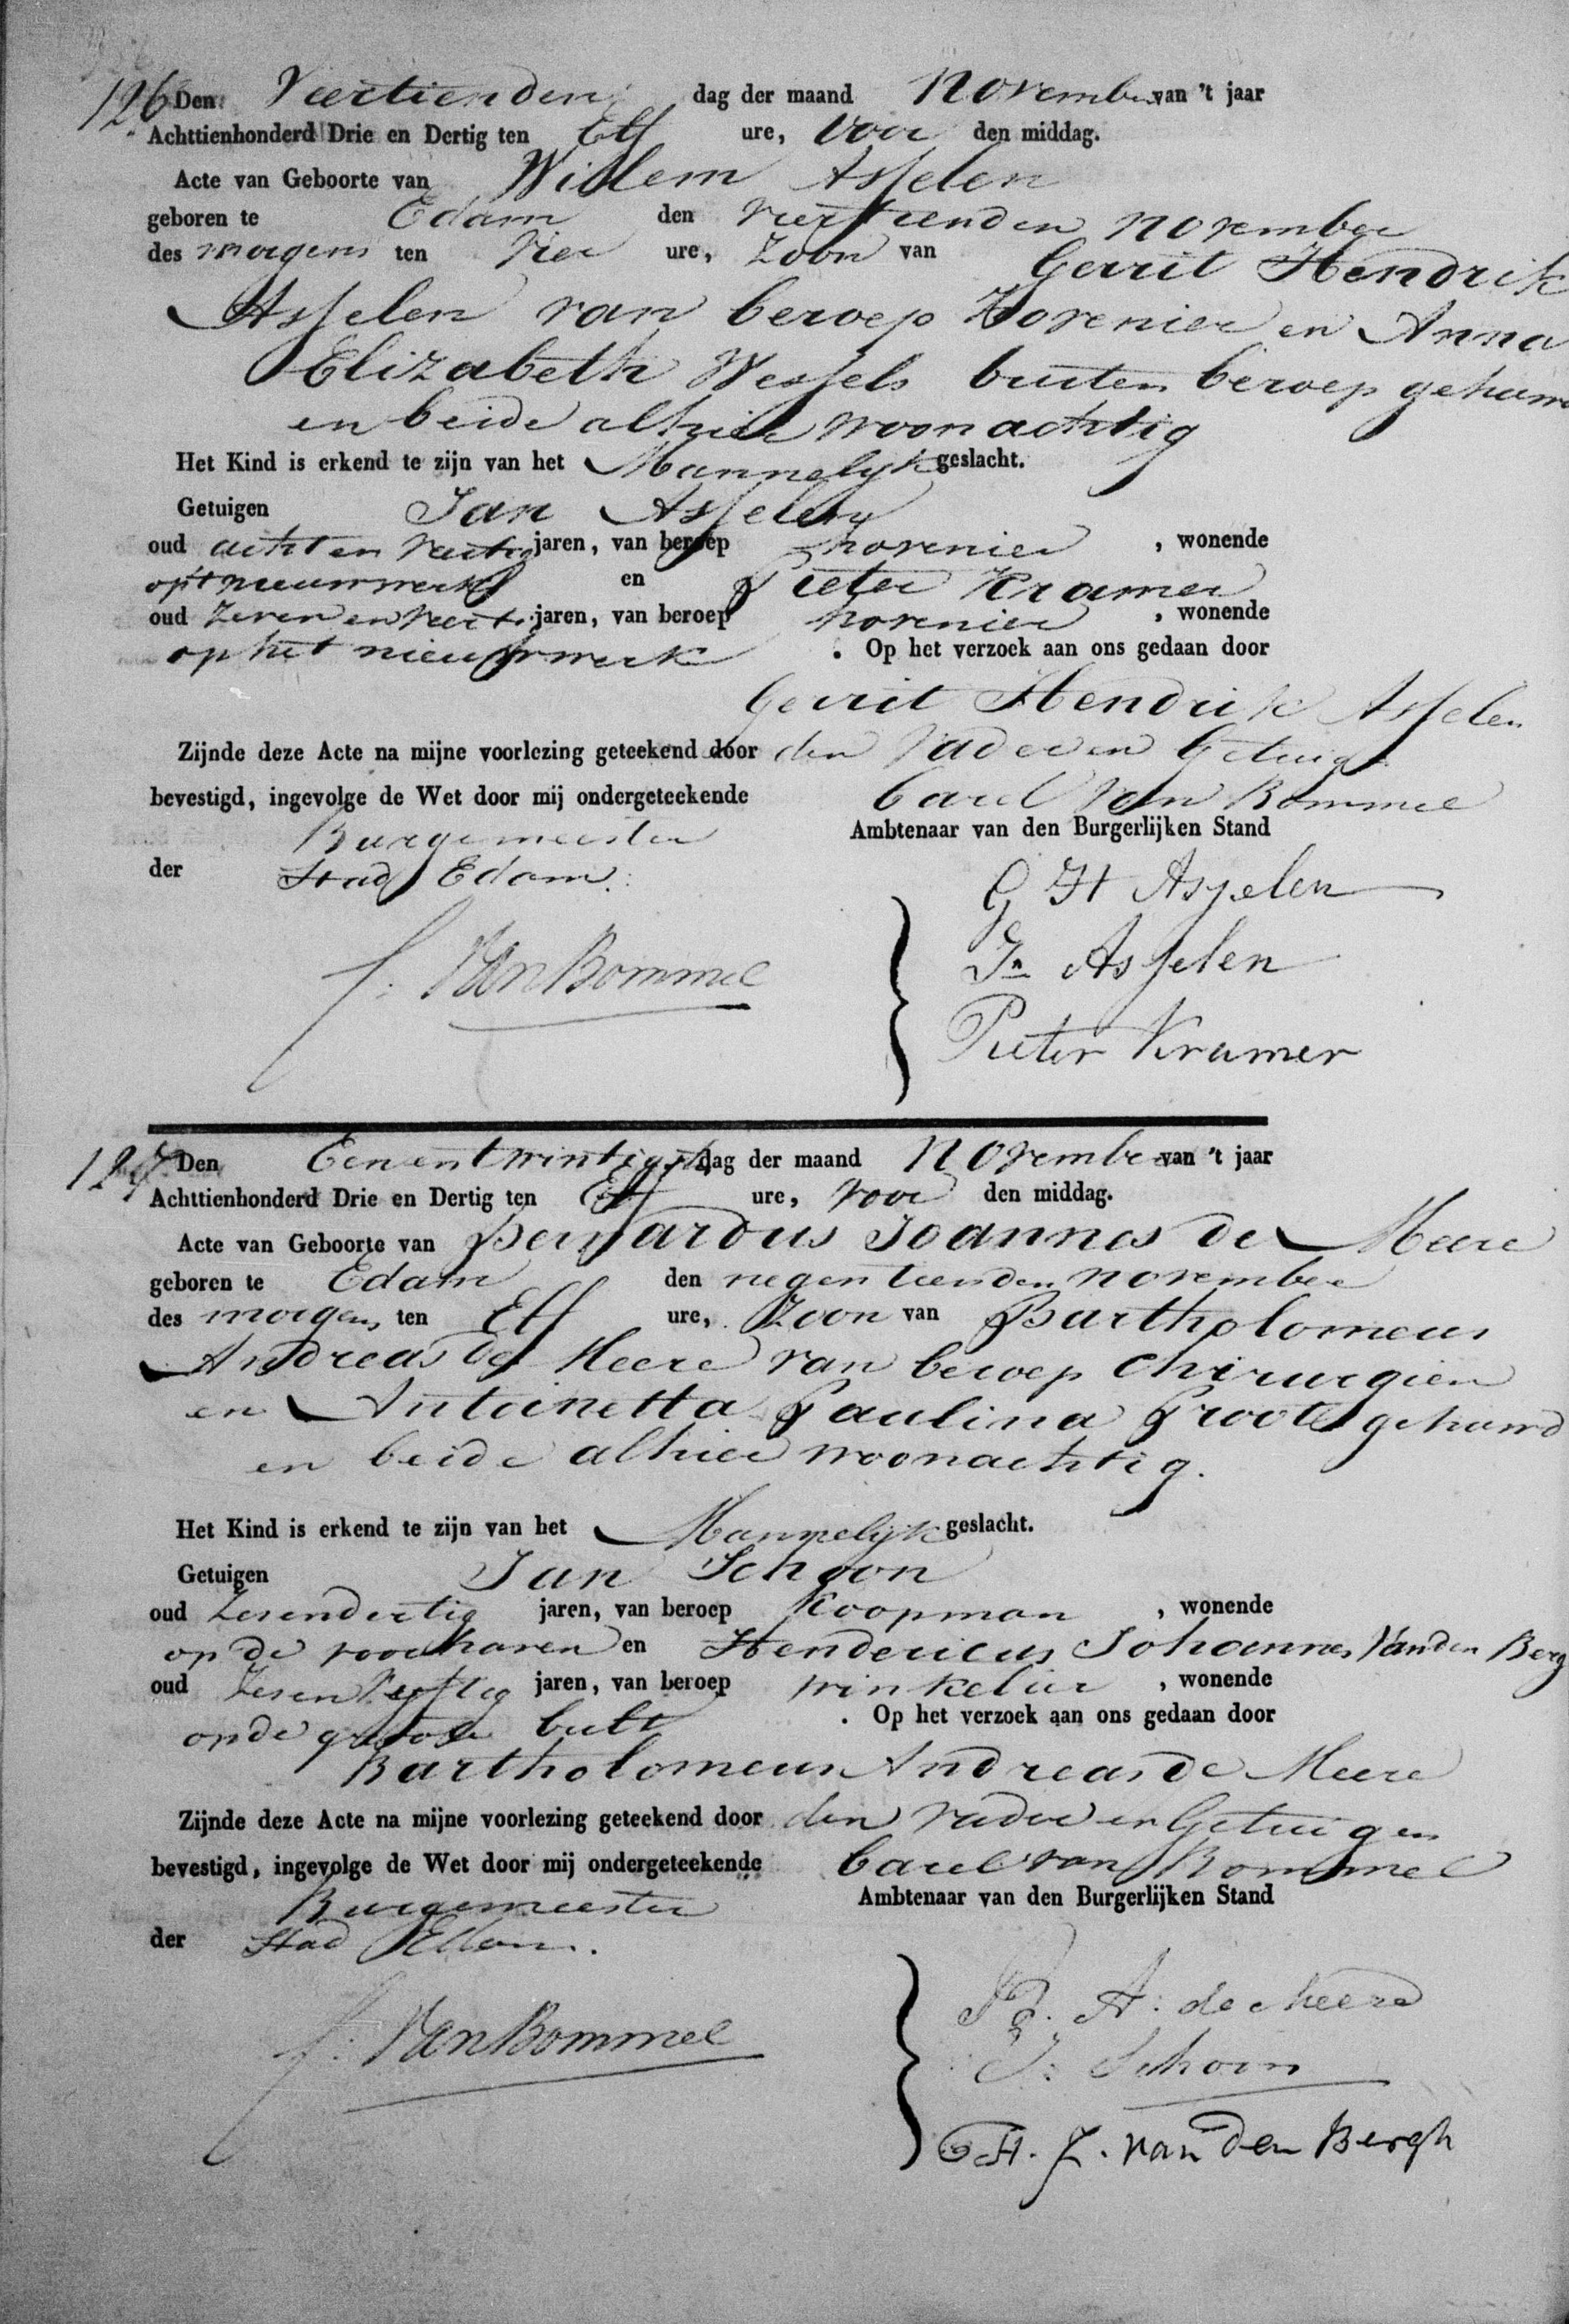 126 Den Veertienden dag der maand November van 't jaar
Achttienhonderd Drie en Dertig ten Elf ure, voor den middag.
Acte van Geboorte van Willem Asselen
geboren te Edam den veertienden november
des morgens ten vier ure, Zoon van Gerrit Hendrik
Asselen van beroep Hovenier en Anna
Elizabeth Wessels buiten beroep gehuwd
en beide alhier woonachtig
Het Kind is erkend te zijn van het Mannelijk geslacht.
Getuigen Jan Asselen
oud acht en veertig jaren, van beroep hovenier , wonende
op't nieuwwerk en Pieter Kramer
oud Zeven en veertig jaren, van beroep hovenier , wonende
op het nieuwwerk . Op het verzoek aan ons gedaan door
Gerrit Hendrik Asselen
Zijnde deze Acte na mijne voorlezing geteekend door den Vader en Getuigen
bevestigd, ingevolge de Wet door mij ondergeteekende Carel van Bommel
Burgemeester Ambtenaar van den Burgerlijken Stand
der Stad Edam.
G H Asselen
VanBommel
Jn Asselen
Pieter Kramer
127 Den Eenentwintigste dag der maand November van 't jaar
Achttienhonderd Drie en Dertig ten Elf ure, voor den middag.
Acte van Geboorte van Bernardus Joannes de Meere
geboren te Edam den negentienden november
des morgens ten Elf ure, Zoon van Bartholomeus
Andreas de Meere van beroep Chirurgien
en Antoinetta Paulina Groot gehuwd
en beide alhier woonachtig.
Het Kind is erkend te zijn van het Mannelijk geslacht.
Getuigen Jan Schoon
oud Zesendertig jaren, van beroep Koopman , wonende
op de voorhaven en Hendericus Johannes Van den Berg
oud Zesenvijftig jaren, van beroep winkelier , wonende
op de groote bult . Op het verzoek aan ons gedaan door
Bartholomeus Andreas de Meere
Zijnde deze Acte na mijne voorlezing geteekend door den vader en Getuigen
bevestigd, ingevolge de Wet door mij ondergeteekende Carel van Bommel
Burgemeester Ambtenaar van den Burgerlijken Stand
der Stad Edam.
B. A: de Meere
VanBommel
J: Schoon
H. J. van den Bergh